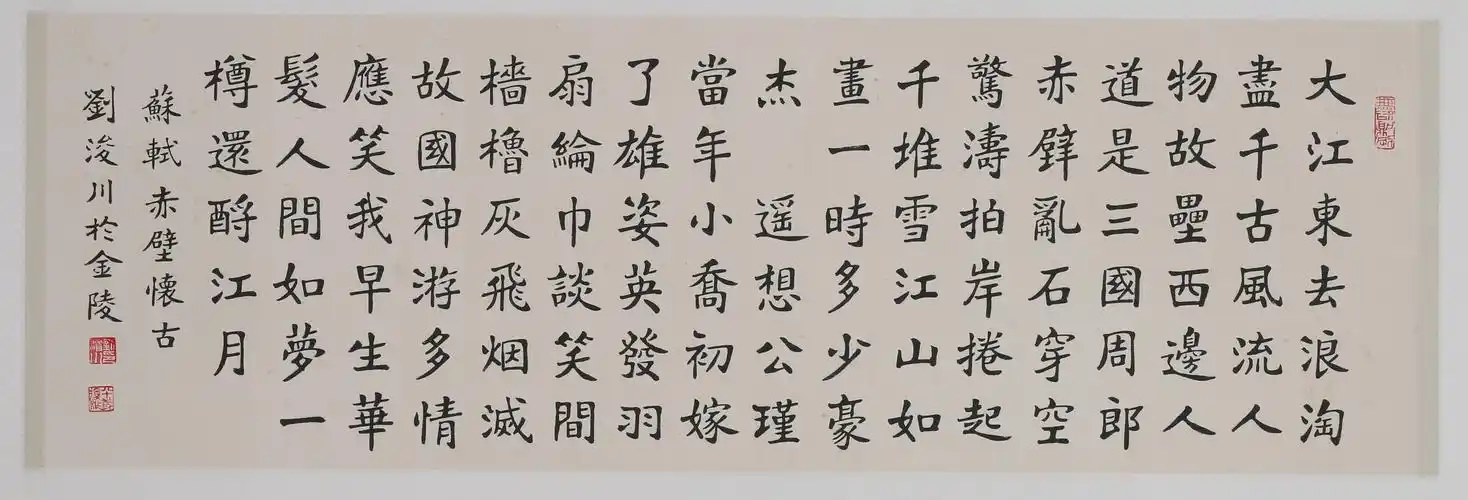 大江東去浪淘
盡千古風流人
物故壘西邊人
道是三國周郎
赤壁亂石穿空
驚濤拍岸捲起
千堆雪江山如
畫一時多少豪
杰 遥想公瑾
當年小喬初嫁
了雄姿英發羽
扇綸巾談笑間
檣櫓灰飛烟滅
故國神游多情
應笑我早生華
髮人間如夢一
樽還酹江月
蘇軾赤壁懷古
劉浚川於金陵